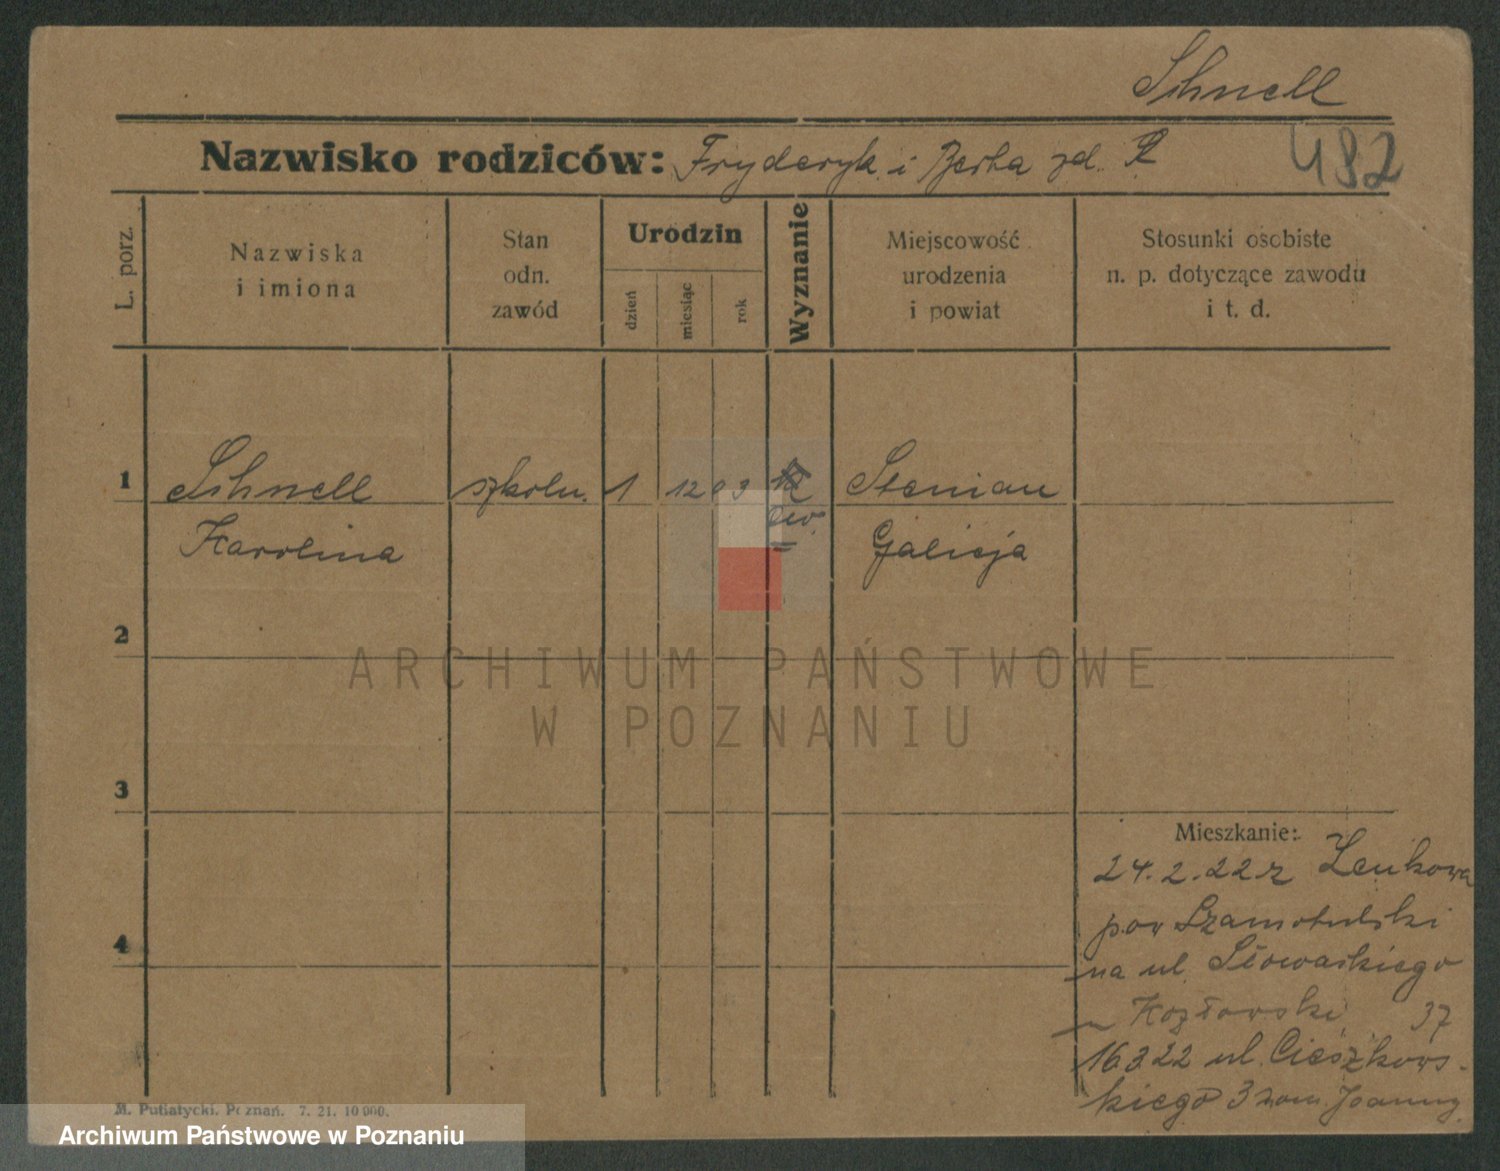 Schnell
Nazwisko rodziców: Fryderyk i Berta zd.
482
L. porz.
Nazwiska
i imiona
Stan
odn.
zawód
Urodzin
dzień
miesiąc
rok
Wyznanie
Miejscowość
urodzenia
i powiat
Stosunki osobiste
n. p. dotyczące zawodu
i t. d.
1 Schnell szkoln. 1 12 03
Karolina ew. Galicja
2
ARCHIWUM PAŃSTWOWE
W POZNANIU
3
Mieszkanie:
24.2.22 r
pow Szamotulski
4
na ul. Słowackiego
Kozłowski 37
16322 ul. Cieszkows-
kiego 3
M. Putiatycki. Poznań. 7. 21. 10 000.
Archiwum Państwowe w Poznaniu